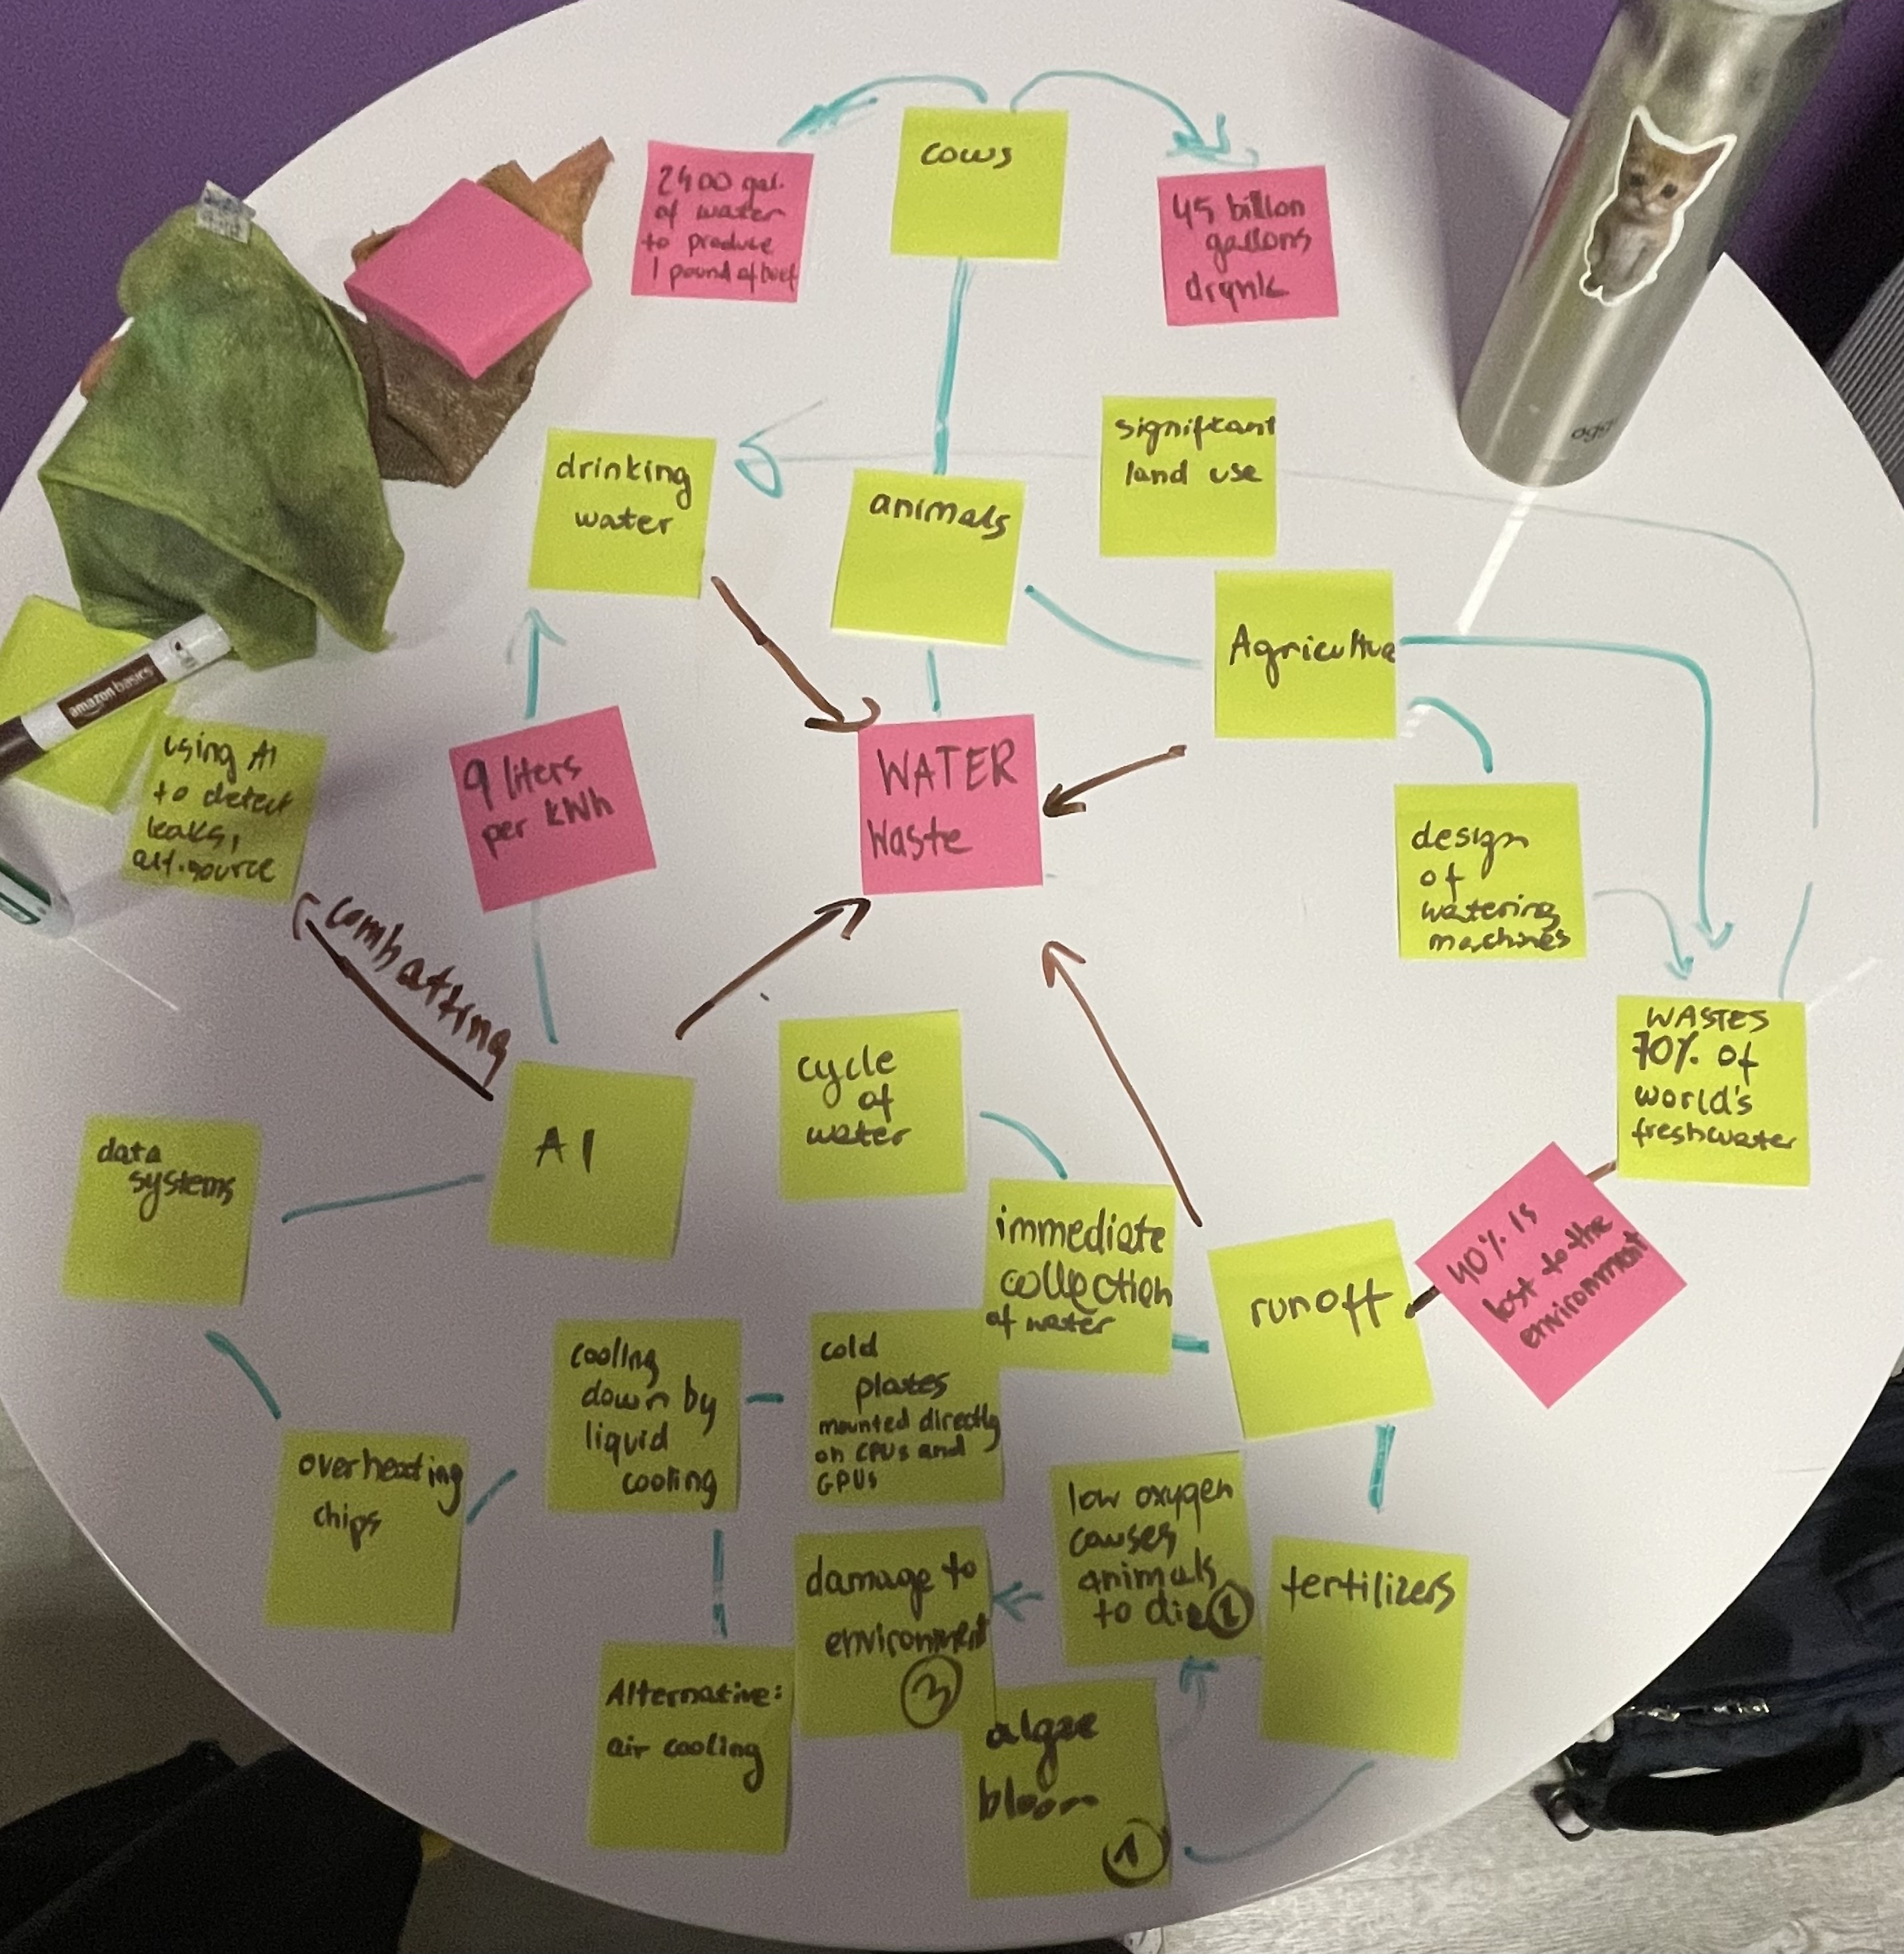 cows
2400 gal.
of water
to produce
1 pound of beef
45 billon
gallons
drank
drinking
water
animals
signifcant
land use
Agriculture
amazon basics
using AI
to detect
leaks,
alt. source
9 liters
per kWh
WATER
Waste
design
of
watering
machines
combatting
WASTES
70% of
world's
freshwater
cycle
of
water
AI
data
systems
immediate
collection
of water
runoff
40% is
lost to the
environment
cooling
down by
liquid
cooling
cold
plates
mounted directly
on CPUs and
GPUs
overheating
chips
low oxygen
causes
animals
to die 2
fertilizers
damage to
environment
3
Alternative:
air cooling
algae
bloom
1